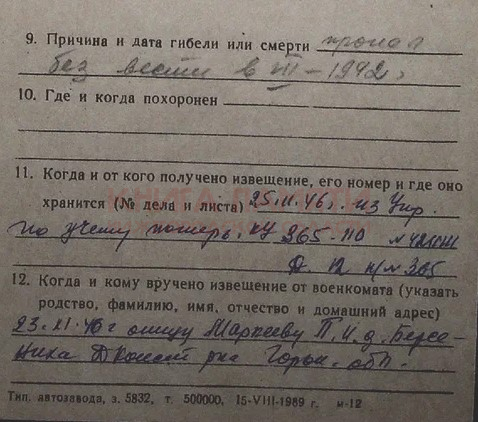 9. Причина и дата гибели или смерти пропал
без вести в III – 1942 г.
10. Где и когда похоронен
11. Когда и от кого получено извещение, его номер и где оно
хранится (№ дела и листа) 25. II. 46 г. из Упр.
по учету потерь.
Д. 12 н/№ 365
12. Когда и кому вручено извещение от военкомата (указать
родство, фамилию, имя, отчество и домашний адрес)
23. XI. 46 г отцу П. И. д.
р-на Горьк. обл.
Тип. автозавода, з. 5832, т. 500000, 15-VIII-1989 г. м-12